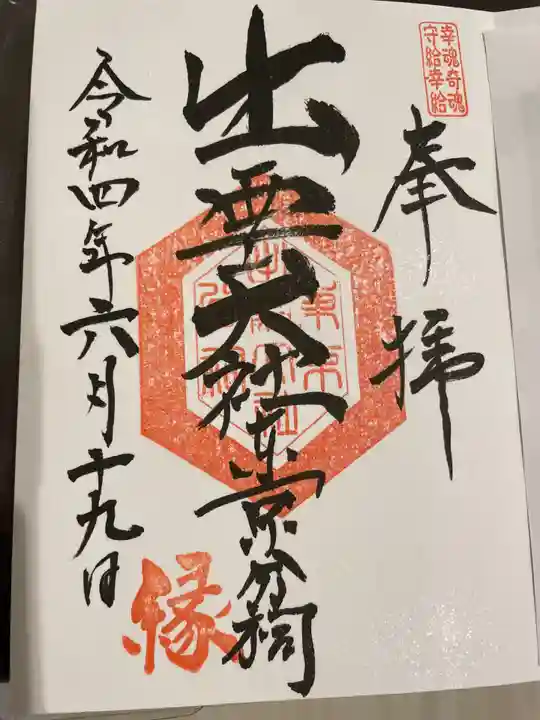 幸魂奇魂
守給幸給
奉拝
出雲大社東京分祠
令和四年六月十九日
縁